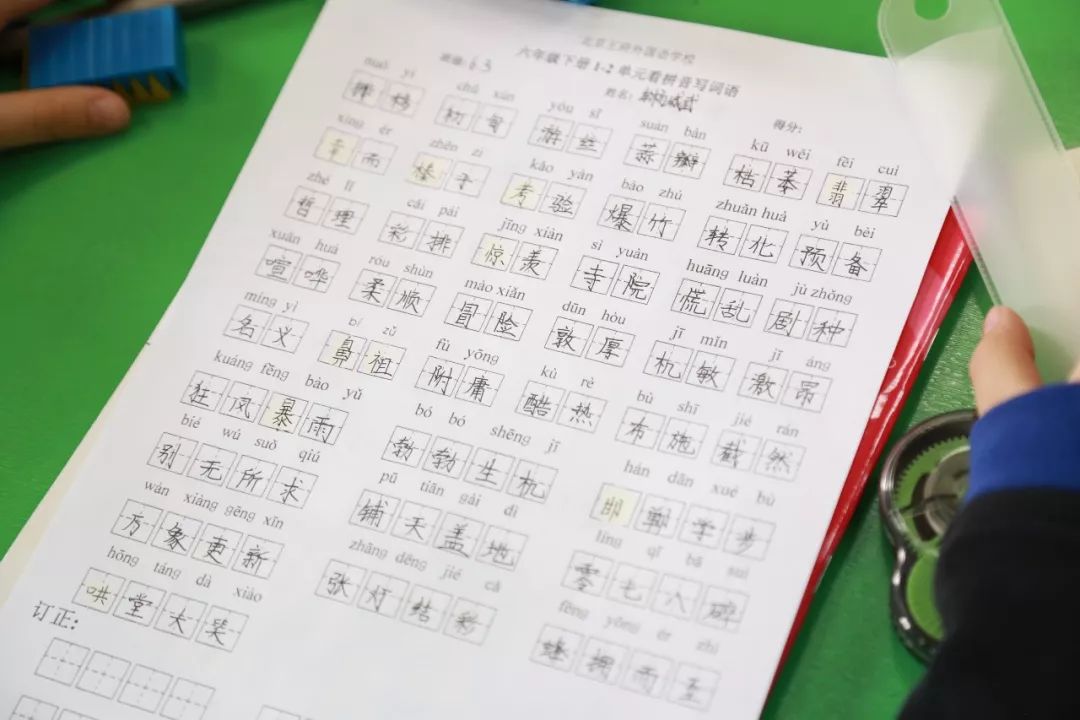 北京王府外国语学校
六年级下册 1-2 单元看拼音写词语
班级: 6.3 姓名: 得分:
nuó yí chū xún yóu sī suàn bàn kū wěi fěi cuì
初旬 游丝 蒜瓣 枯萎 翡翠
xìng ér zhēn zi kǎo yàn bào zhú zhuǎn huà yù bèi
幸而 榛子 考验 爆竹 转化 预备
zhé lǐ cǎi pái jīng xiàn sì yuàn huāng luàn jù zhǒng
哲理 彩排 惊羡 寺院 慌乱 剧种
xuān huá róu shùn mào xiǎn dūn hòu jī mǐn jī áng
喧哗 柔顺 冒险 敦厚 机敏 激昂
míng yì bí zǔ fù yōng kù rè bù shī jié rán
名义 鼻祖 附庸 酷热 布施 截然
kuáng fēng bào yǔ bó bó shēng jī hán dān xué bù
狂风暴雨 勃勃生机 邯郸学步
bié wú suǒ qiú pū tiān gài dì líng qī bā suì
别无所求 铺天盖地 零七八碎
wàn xiàng gēng xīn zhāng dēng jié cǎi fēng yōng ér zhì
方象更新 张灯结彩 蜂拥而至
hōng táng dà xiào
哄堂大笑
订正: